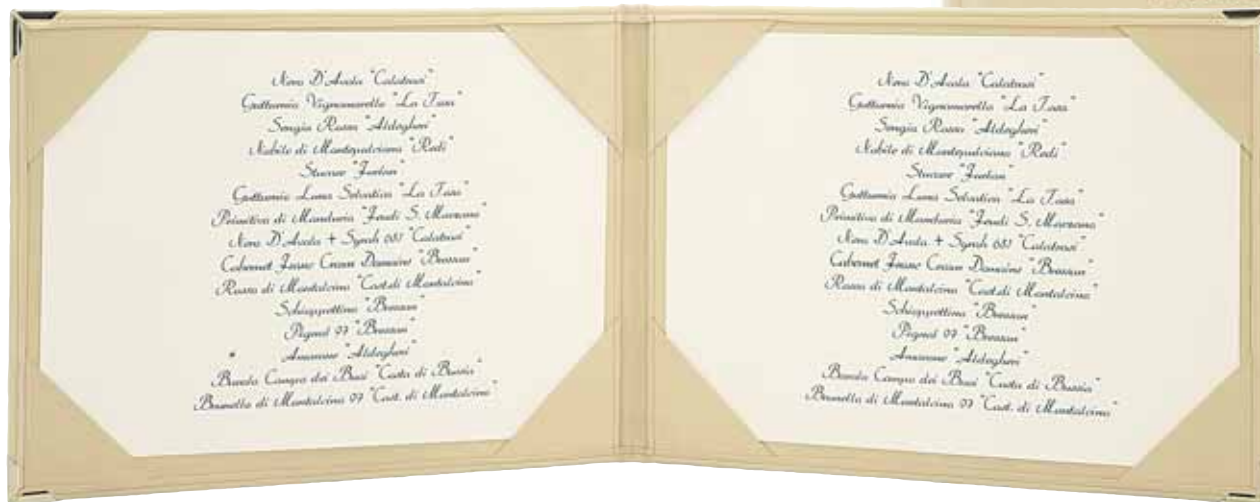 Nero D'Avola "Calatrasi"
Gutturnio Vignamorello "La Tosa"
Sengia Rossa "Aldegheri"
Nobile di Montepulciano "Redi"
"Furlan"
Gutturnio Luna Selvatica "La Tosa"
Primitivo di Manduria "Feudi S. Marzano"
Nero D'Avola + Syrah "Calatrasi"
Cabernet Franc Domaine "Bressan"
Rosso di Montalcino "Cast. di Montalcino"
Schioppettino "Bressan"
Pignol 97 "Bressan"
Amarone "Aldegheri"
Barolo Campo dei Buoi "Costa di Bussia"
Brunello di Montalcino 97 "Cast. di Montalcino"
Nero D'Avola "Calatrasi"
Gutturnio Vignamorello "La Tosa"
Sengia Rossa "Aldegheri"
Nobile di Montepulciano "Redi"
"Furlan"
Gutturnio Luna Selvatica "La Tosa"
Primitivo di Manduria "Feudi S. Marzano"
Nero D'Avola + Syrah "Calatrasi"
Cabernet Franc Domaine "Bressan"
Rosso di Montalcino "Cast. di Montalcino"
Schioppettino "Bressan"
Pignol 97 "Bressan"
Amarone "Aldegheri"
Barolo Campo dei Buoi "Costa di Bussia"
Brunello di Montalcino 97 "Cast. di Montalcino"